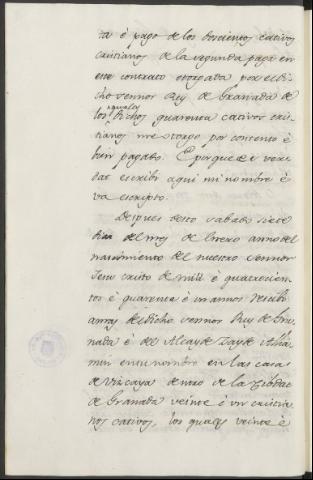 ta é pago de los docientos cativos
cristianos de la segunda paga en
este contrato otorgada por el di-
cho sennor Rey de Granada de
los quales dichos quarenta cativos cris-
tianos me otorgo por contento é
bien pagado. E porque es ver-
dat escribi aqui mi nombre é
va escripto.
Despues desto sabado siete
dias del mes de Enero anno del
nascimiento del nuestro sennor
Jesu cristo de mill é quatrocien-
tos é quarenta é un annos recibi
mas del dicho sennor Rey de Gra-
nada é del Alcayde Zayde Alha-
min en su nombre en las casas
de Vizcaya dentro de la Cibdat
de Granada veinte é un cristia-
nos cativos, los quales veinte é